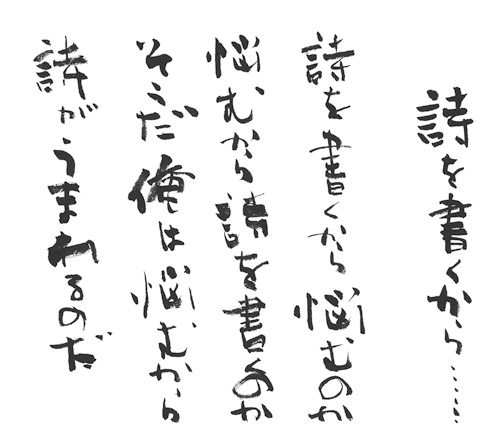 詩を書くから……
詩を書くから悩むのか
悩むから詩を書くのか
そうだ俺は悩むから
詩がうまれるのだ